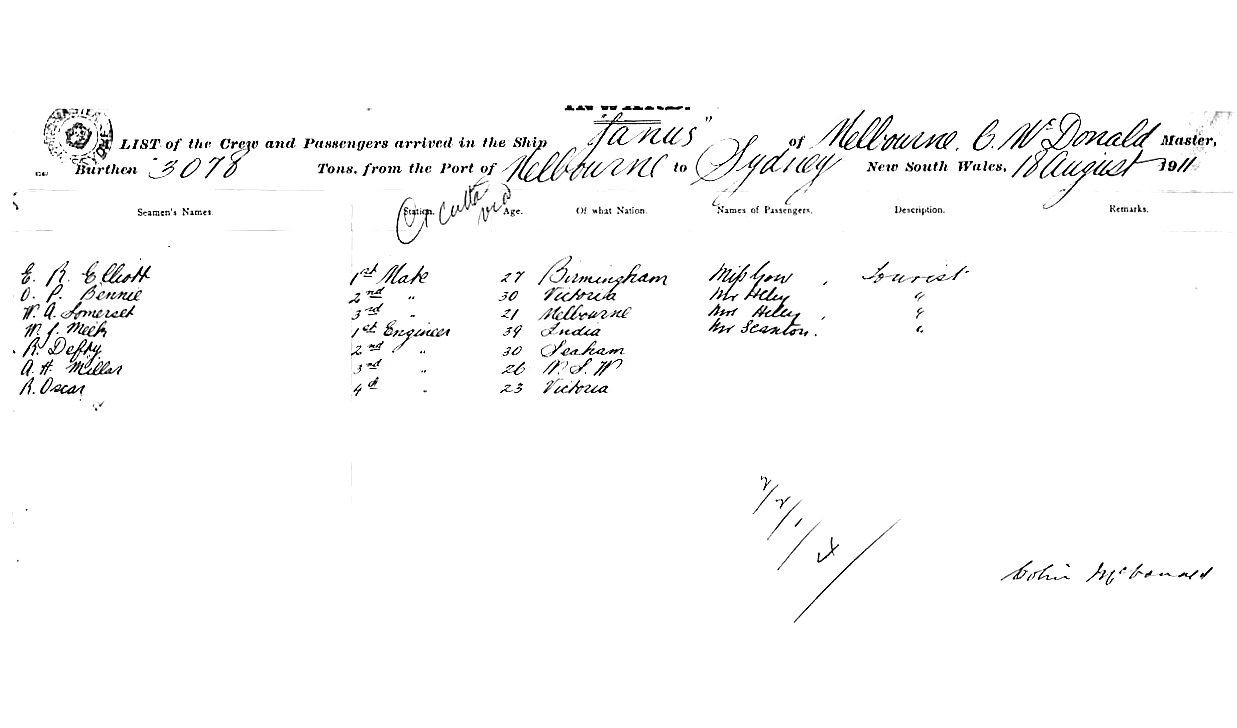 INWARD.
A LIST of the Crew and Passengers arrived in the Ship "Janus" of Melbourne, C. McDonald Master,
Burthen 3078 Tons, from the Port of Melbourne to Sydney New South Wales, 18 August 1911
Calcutta via
Seamen's Names. Station. Age. Of what Nation. Names of Passengers. Description. Remarks.
E. R. Elliott 1st Mate 27 Birmingham Miss Gow Tourist
O. P. Bennie 2nd " 30 Victoria Mr Heley "
W. A. Somerset 3rd " 21 Melbourne Mrs Heley "
W. J. Meek 1st Engineer 39 India Mr Scanton. "
R. 2nd " 30 Seaham
A. H. Millar 3rd " 26 N. S. W
R. Oscar 4th " 23 Victoria
2/2/1/4/
Colin McDonald